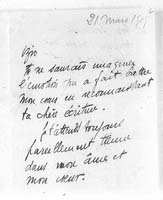 21 Mars 1917
Ojo
Tu ne saurais imaginer
l'émotion qui a fait battre
mon cœur en reconnaissant
ta chère écriture.
J'étais toujours
pareillement tienne
dans mon âme et
mon cœur.